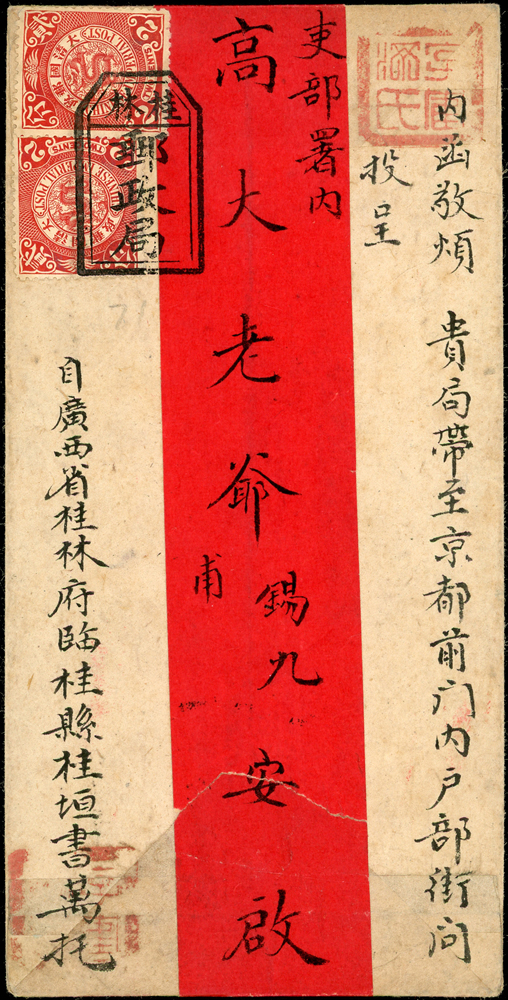 内函敬煩
貴局帶至京都前门内户部街问
投呈
吏部署内
高大老爺
錫九
甫
安啟
自廣西省桂林府臨桂縣桂垣書萬托
桂林
郵政局
大清國郵政
CHINESE IMPERIAL POST
2
TWO CENTS
貳分
2
CHINESE IMPERIAL POST
2
TWO CENTS